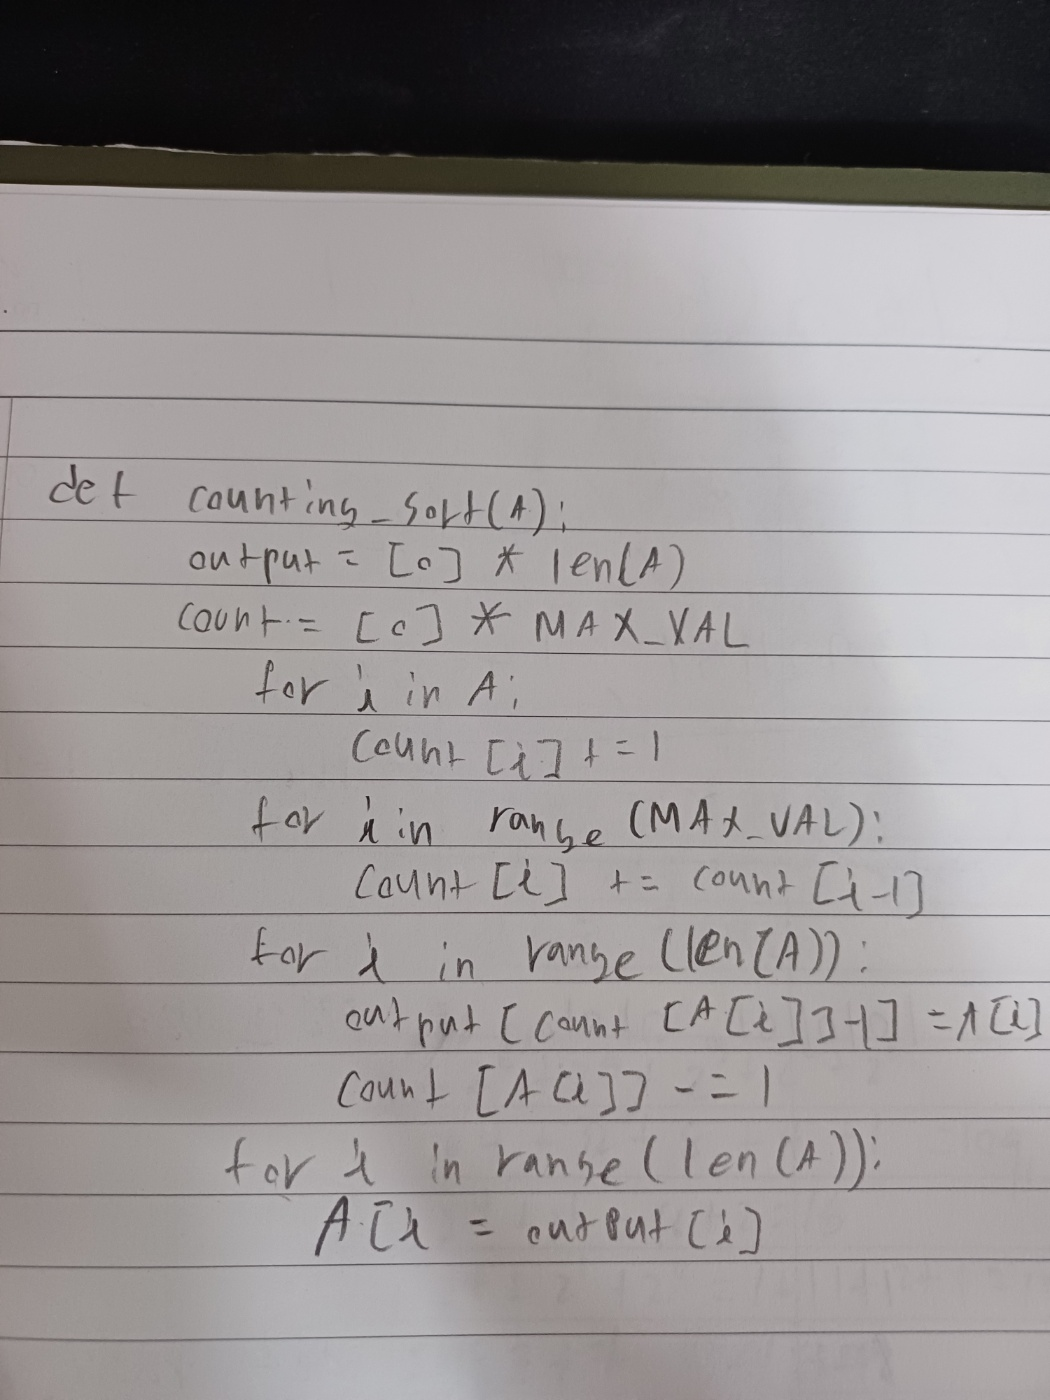 def counting_sort(A):
output = [0] * len(A)
count = [0] * MAX_VAL
for i in A:
count [i] += 1
for i in range (MAX_VAL):
count [i] += count [i-1]
for i in range (len(A)):
output [count [A[i]]-1] = A[i]
count [A[i]] -= 1
for i in range (len (A)):
A[i = output [i]